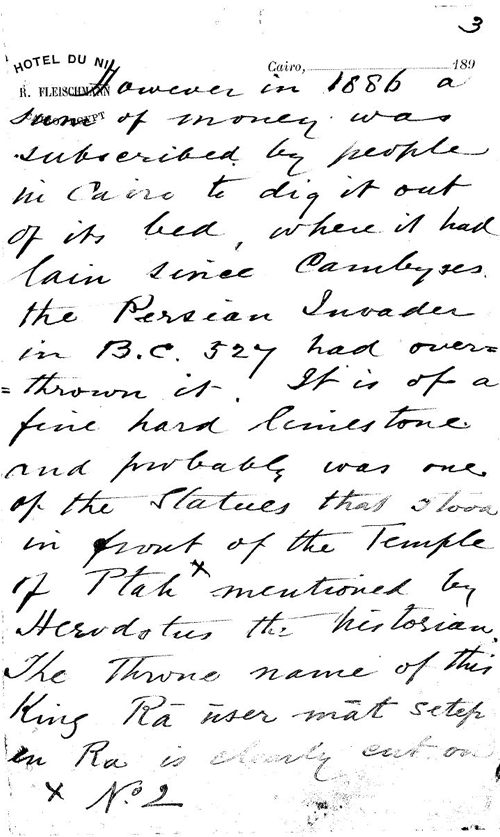 3
HOTEL DU NIL
Cairo, 189
R. FLEISCHMANN
However in 1886 a
sum of money was
subscribed by people
in Cairo to dig it out
of its bed, where it had
lain since Cambyses
the Persian Invader
in B.C. 527 had over=
=thrown it. It is of a
fine hard limestone
and probably was one
of the Statues that stood
in front of the Temple
of Ptah x mentioned by
Herodotus the historian.
The Throne name of this
King Rā ūser māt setep
en Ra is clearly cut on
x No. 2